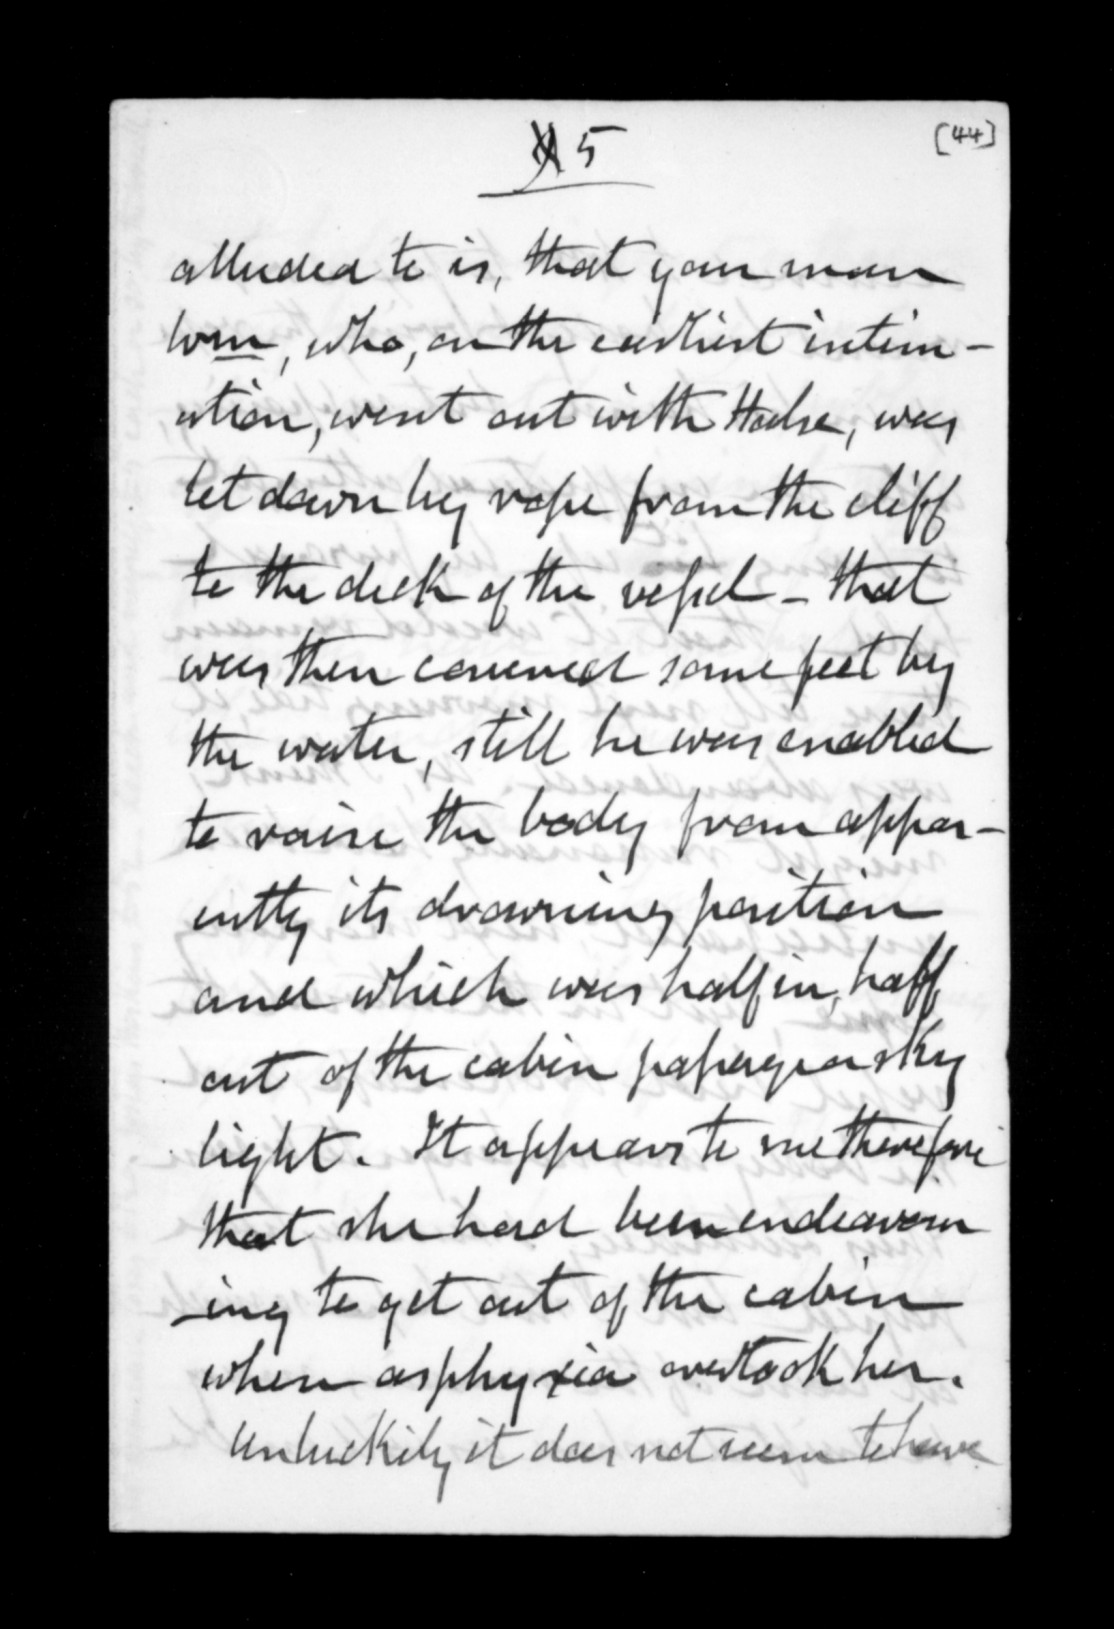 5
[44]
alluded to is, that your man
Wm, who, on the earliest intim-
ation, went out with Halse, was
let down by rope from the cliff
to the deck of the vessel - that
was then covered some feet by
the water, still he was enabled
to raise the body from appar-
ently its drowning position
and which was half in, half
out of the cabin passage or sky
light. It appears to me therefore
that she had been endeavour
-ing to get out of the cabin
when asphyxia overtook her.
Unluckily it does not seem to have